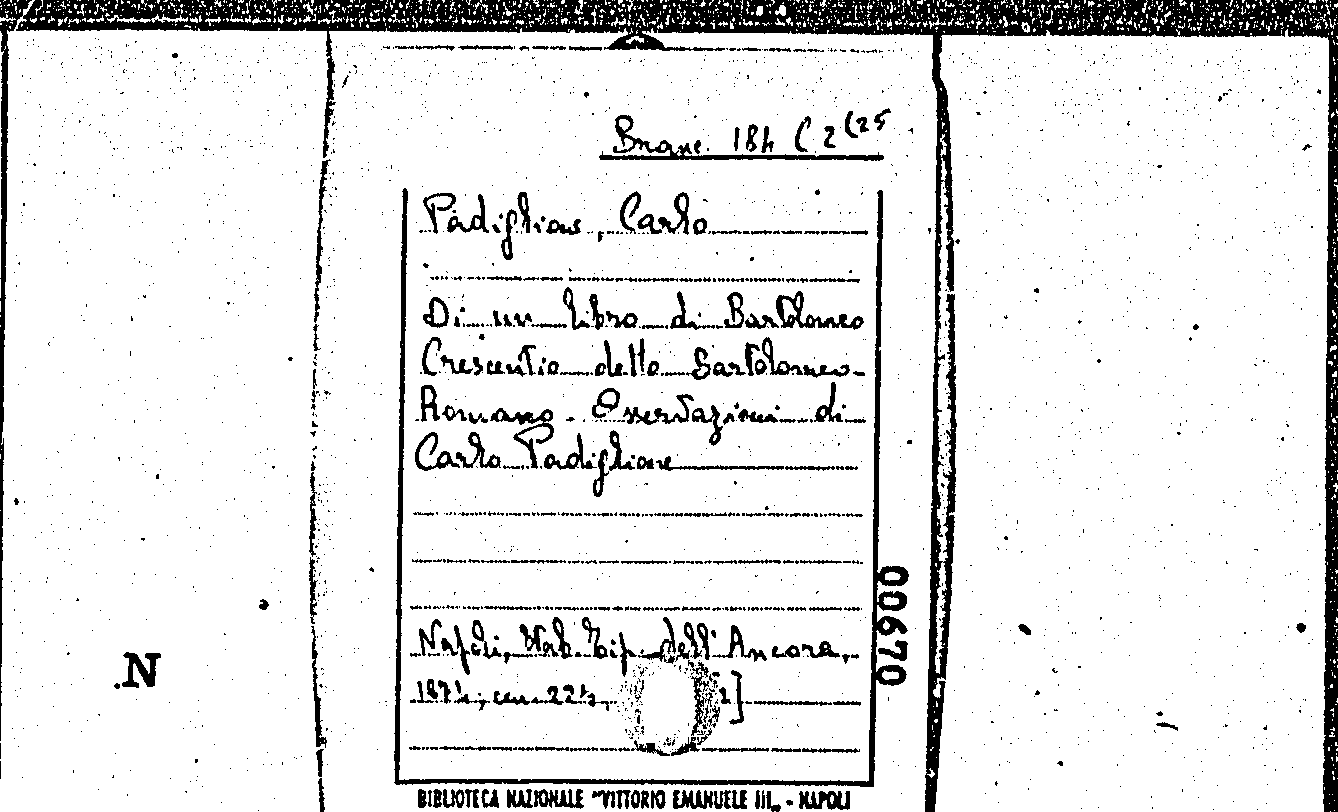 Branc. 184 C 2(25
Padiglione, Carlo
Di un libro di Bartolomeo
Crescentio detto Bartolomeo
Romano - Osservazioni di
Carlo Padiglione
Napoli, Stab. Tip. dell'Ancora,
1874; cm. 22½,
]
00670
.N
BIBLIOTECA NAZIONALE "VITTORIO EMANUELE III„ - NAPOLI